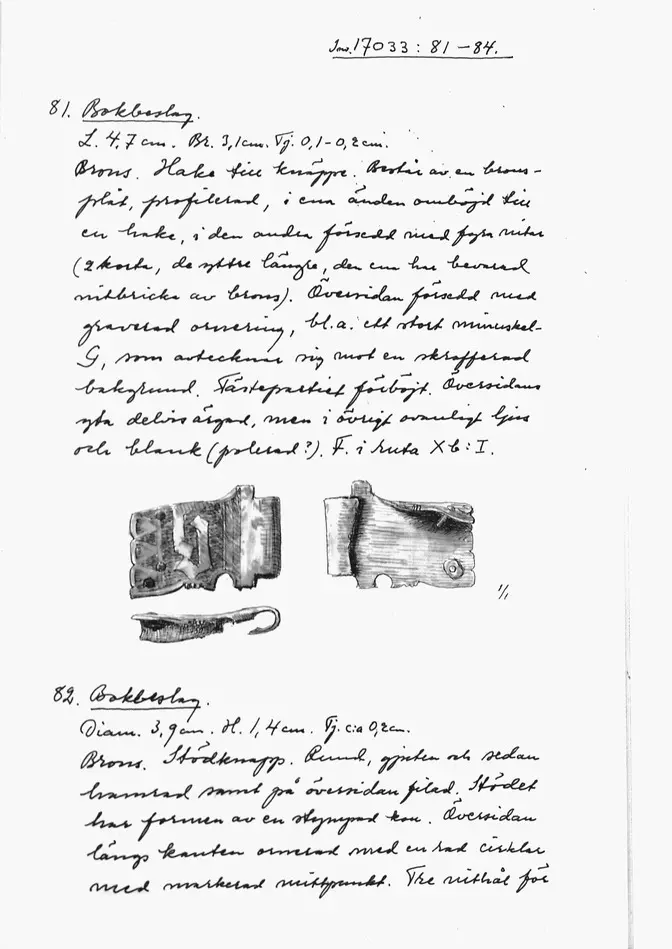 Inv. 17033 : 81 – 84.
81. Bokbeslag.
L. 4,7 cm. Br. 3,1 cm. Tj. 0,1 – 0,2 cm.
Brons. Hake till knäppe. Består av en brons-
plåt, profilerad, i ena änden ombøjd till
en hake, i den andra försedd med fyra nitar
(2 korta, de yttre längre, den ena har bevarad
nitbricka av brons). Översidan försedd med
graverad ornering, bl.a. ett stort minuskel-
G, som avtecknar sig mot en skrafferad
bakgrund. Fästepartiet förböjt. Översidans
yta delvis ärgad, men i övrigt ovanligt ljus
och blank (polerad?). F. i ruta Xb : I.
1/1
82. Bokbeslag.
Diam. 3,9 cm. H. 1,4 cm. Tj. c:a 0,2 cm.
Brons. Stödknapp. Rund, gjuten och sedan
hamrad samt på översidan filad. Stödet
har formen av en stympad kon. Översidan
längs kanten ornerad med en rad cirklar
med markerad mittpunkt. Tre nithål för